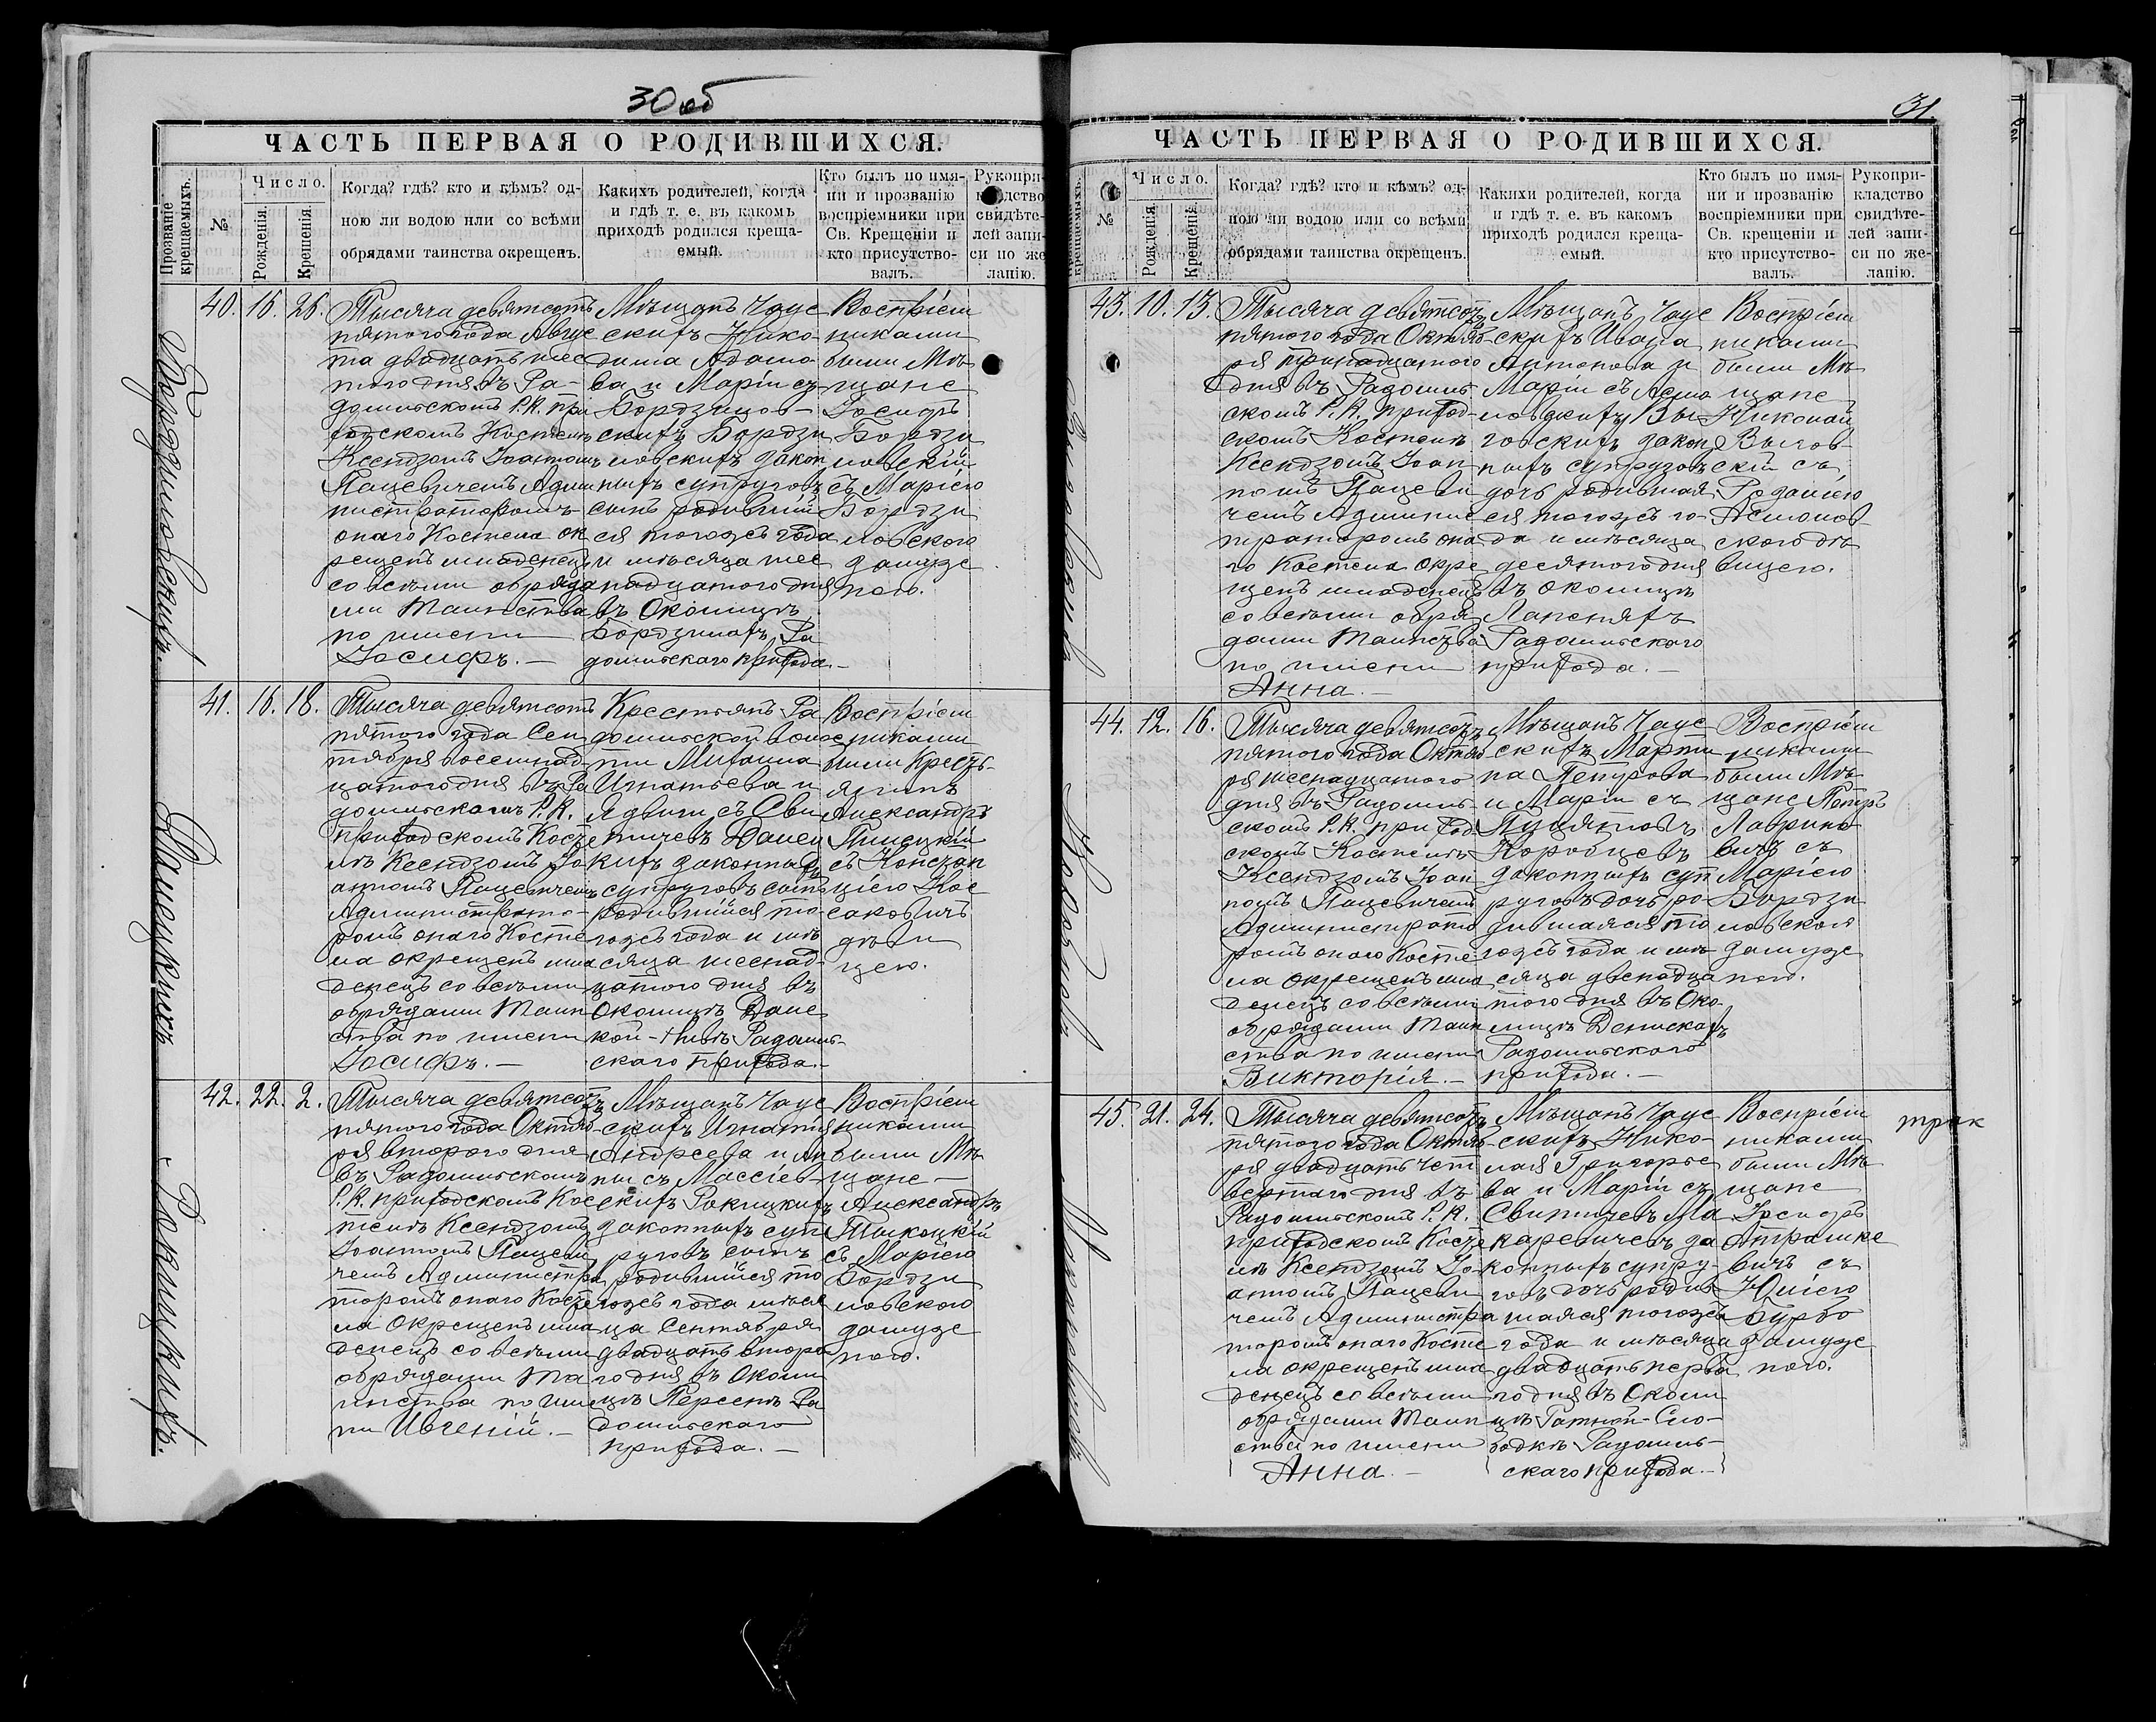 30 об
ЧАСТЬ ПЕРВАЯ О РОДИВШИХСЯ.
Прозваніе крещаемыхъ.
№
Число.
Рожденія.
Крещенія.
Когда? гдѣ? кто и кѣмъ? од-
ною ли водою или со всѣми
обрядами таинства окрещенъ.
Какихъ родителей, когда
и гдѣ т. е. въ какомъ
приходѣ родился креща-
емый.
Кто былъ по имя-
ни и прозванію
воспріемники при
Св. Крещеніи и
кто присутство-
валъ.
Рукопри-
кладство
свидѣте-
лей запи-
си по же
ланію.
Бордзиловскихъ.
40. 16. 26.
Тысяча девятсотъ
пятого года Авгус
та двадцать шес
того дня въ Ра-
домльскомъ Р.К. при
ходскомъ Костелѣ
Ксендзомъ Іоанномъ
Пацевичемъ Адми
нистраторомъ
онаго Костела ок
рещенъ младенецъ
со всѣми обряда
ми Таинства
по имени
Іосифъ. —
Мѣщанъ Чаус
скихъ Нико-
дима Адамо
ва и Маріи съ
Бордзилов-
скихъ Бордзи
ловскихъ закон
ныхъ супруговъ
сынъ родившій
ся тогожъ года
и мѣсяца шес
надцатого дня
въ Околицѣ
Бордзилахъ Ра
домльскаго прихода. —
Воспріем
никами
были Мѣ
щане
Іосифъ
Бордзи
ловскій
съ Маріею
Бордзи
ловскою
замуж
нею.
41. 16. 18.
Тысяча девятсотъ
пятого года Сен
тября восемнад
цатого дня въ Ра
домльскомъ Р.К.
приходскомъ Косте
лѣ Ксендзомъ Іо
анномъ Пацевичемъ
Администрато-
ромъ онаго Косте
ла окрещенъ мла
денецъ со всѣми
обрядами Таин
ства по имени
Іосифъ. —
Крестьянъ Ра
домльской волос
ти Михаила
Игнатьева и
Ядвиги съ Сви
ничевъ
законныхъ
супруговъ сынъ
родившійся то
гожъ года и мѣ
сяца шеснад-
цатого дня въ
Околицѣ
Радомль-
скаго прихода. —
Воспріем
никами
были Крестъ-
янинъ
Александръ
съ Констан
ціею Кос
саковичъ
дѣви
цею.
Ракицкихъ.
42. 22. 2.
Тысяча девятсотъ
пятого года Октяб
ря второго дня
въ Радомльскомъ
Р.К. приходскомъ Кос
телѣ Ксендзомъ
Іоанномъ Пацеви
чемъ Администра
торомъ онаго Косте
ла окрещенъ мла
денецъ со всѣми
обрядами Та
инства по име
ни Ивгеній. —
Мѣщанъ Чаус
скихъ Игнатія
Андреева и Ан
ны съ Массіев-
скихъ Ракицкихъ
законныхъ суп
руговъ сынъ
родившійся то
гожъ года мѣся
ца Сентября
двадцать второ
го дня въ Околи
цѣ Ра
домльскаго
прихода. —
Воспріем
никами
были Мѣ
щане —
Александръ
съ Маріею
Бордзи
ловскою
замуж
нею.
31.
ЧАСТЬ ПЕРВАЯ О РОДИВШИХСЯ.
№
Число.
Рожденія.
Крещенія.
Когда? гдѣ? кто и кѣмъ? од-
ною ли водою или со всѣми
обрядами таинства окрещенъ.
Какихи родителей, когда
и гдѣ т. е. въ какомъ
приходѣ родился креща-
емый.
Кто былъ по имя-
ни и прозванію
воспріемники при
Св. крещеніи и
кто присутство-
валъ.
Рукопри-
кладство
свидѣте-
лей запи-
си по же-
ланію.
43. 10. 13.
Тысяча девятсотъ
пятого года Октяб-
ря тринадцатого
дня въ Радомль
скомъ Р.К. приход-
скомъ Костелѣ
Ксендзомъ Іоан
номъ Пацеви
чемъ Админис
траторомъ она
го Костела окре
щенъ младенецъ
со всѣми обря
дами Таинства
по имени
Анна. —
Мѣщанъ Чаус
скихъ Ивана
Антонова и
Маріи съ Асмо
ловскихъ Вы
говскихъ закон
ныхъ супруговъ
дочь родившая
ся тогожъ го
да и мѣсяца
десятого дня
въ околицѣ
Радомльского
прихода. —
Воспріем
никами
были Мѣ
щане
Николай
Выгов-
скій съ
ского дѣ
вицею.
44. 12. 16.
Тысяча девятсотъ
пятого года Октяб
ря шеснадцатого
дня въ Радомль-
скомъ Р.К. приход
скомъ Костелѣ
Ксендзомъ Іоан
номъ Пацевичемъ
Администрато
ромъ онаго Косте
ла окрещенъ мла
денецъ со всѣми
обрядами Таин
ства по имени
Викторія. —
Мѣщанъ Чаус
скихъ Марти
на Петрова
и Маріи съ
законныхъ суп
руговъ дочь ро
дившаяся то
гожъ года и мѣ
сяца двенадца
того дня въ Око
лицѣ Денискахъ
Радомльского
прихода. —
Воспріем
никами
были Мѣ
щане Петръ
Лаврино
вичъ съ
Маріею
Бордзи
ловская
замуж
нею.
45. 21. 24.
Тысяча девятсотъ
пятого года Октяб
ря двадцать чет
вертаго дня въ
Радомльскомъ Р.К.
приходскомъ Косте
лѣ Ксендзомъ Іо-
анномъ Пацеви
чемъ Администра
торомъ онаго Косте
ла окрещенъ мла
денецъ со всѣми
обрядами Таин
ства по имени
Анна. —
Мѣщанъ Чаус
скихъ Нико-
лая Григорье
ва и Маріи съ
Свиничевъ Ма
каревичевъ за
конныхъ супру-
говъ дочь родив
шаяся тогожъ
года и мѣсяца
двадцать перва
го дня въ Околи
цѣ Гатной-Сло-
бодкѣ Радомль-
скаго прихода. —
Воспріем
никами
были Мѣ
щане
Іосифъ
вичъ съ
Юліею
замуж
нею.